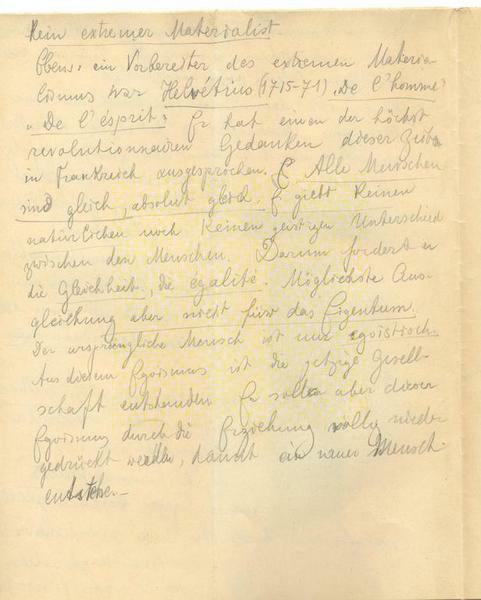 Kein extremer Materialist.
Ebens: ein Vorbereiter des extremen Materia-
lismus war Helvétius (1715-71) „De l'homme"
„De l'ésprit". Er hat einen der höchst
revolutionnairen Gedanken dieser Zeit
in Frankreich ausgesprochen. Alle Menschen
sind gleich, absolut gleich. Es giebt keinen
natürlichen noch keinen geistigen Unterschied
zwischen den Menschen. Darum fordert er
die Gleichheit, die égalité. Möglichste Aus-
gleichung aber nicht fürs das Eigentum.
Der ursprüngliche Mensch ist nur egoistisch.
Aus diesem Egoismus ist die jetzige Gesell-
schaft entstanden. Es solle aber dieser
Egoismus durch die Erziehung völlig nieder
gedrückt werden, damit ein neuer Mensch
entstehe.-